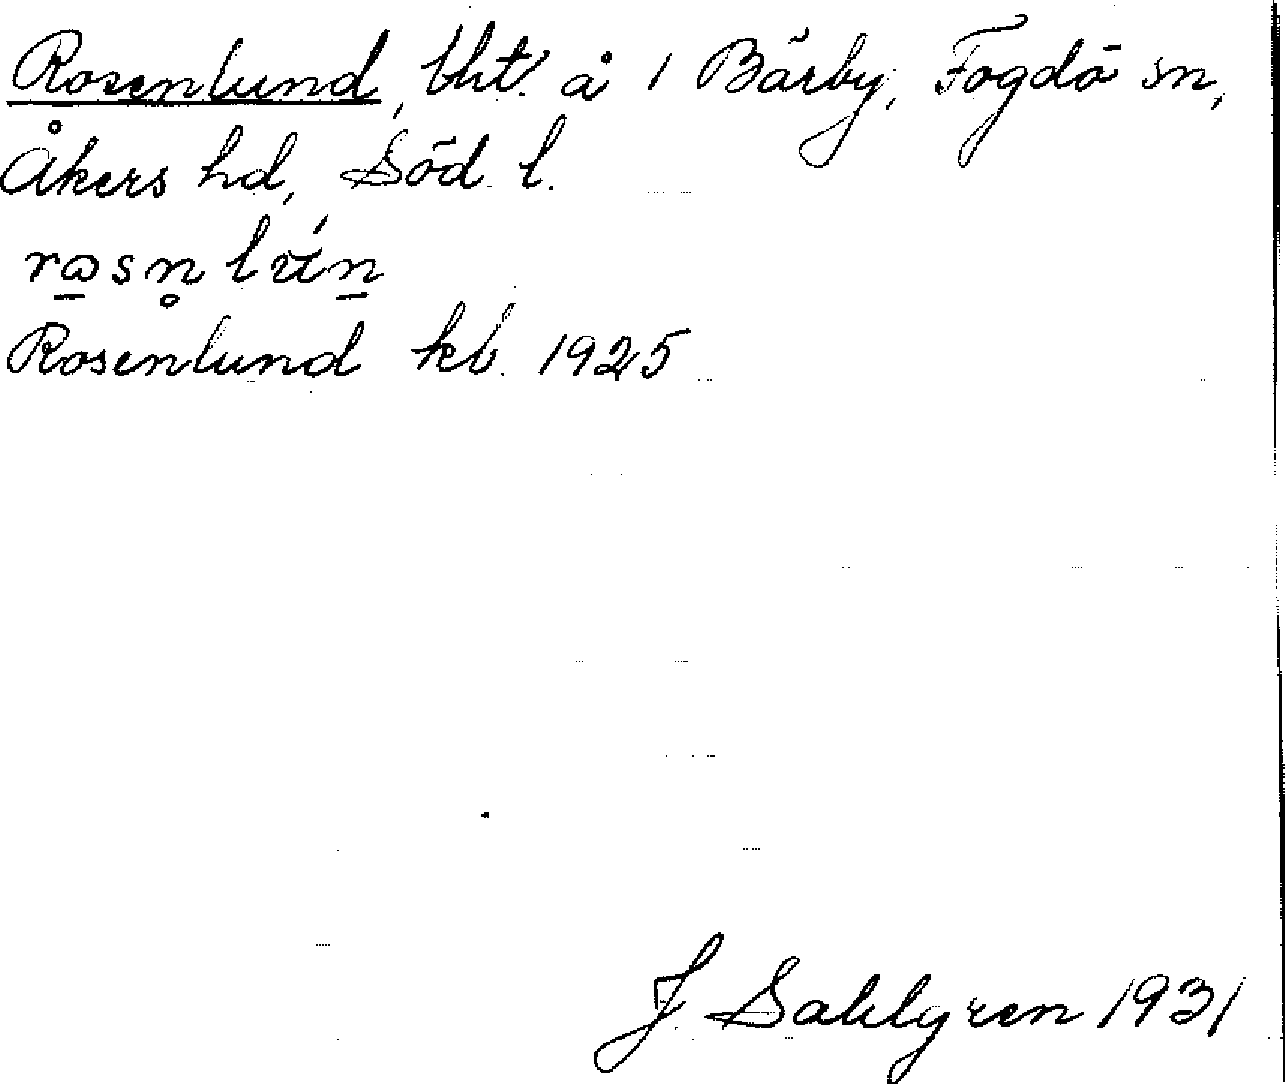 Rosenlund, lht. å 1 Bärby, Fogdö sn,
Åkers hd, Söd. l.
Rosenlund kb. 1925
J. Sahlgren 1931